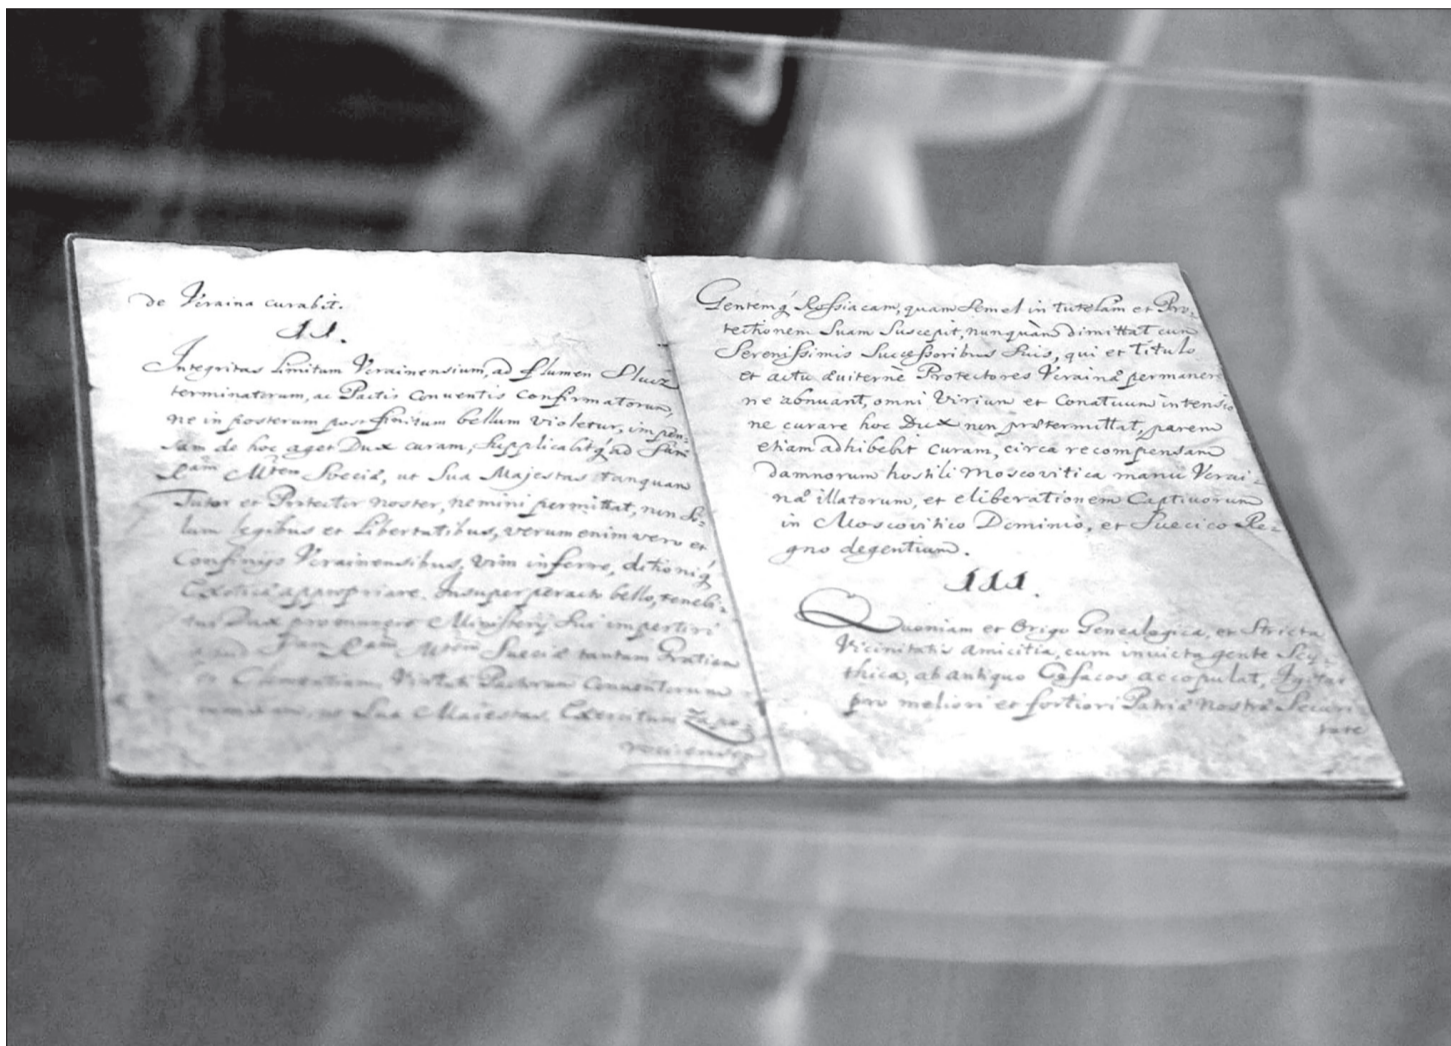 de Ucraina curabit.
II.
Integritas limitum Ucrainensium, ad flumen Slucz
terminatorum, ac Pactis Conventis Confirmatorum,
ne in posterum post finitum bellum violetur, impen-
sam de hoc aget Dux curam, supplicabitq́ ad Sam
Ram Mtem Sveciæ, ut Sua Majestas tanquam
Tutor et Protector noster, nemini permittat, non so-
lum legibus et Libertatibus, verum enim vero et
Confinijs Ucrainensibus, vim inferre, ditioniq́
Exoticæ appropriare. Insuper peracto bello, tenebi-
tur Dux pro munere Ministerij sui impertiri
apud Sam Ram Mtem Sueciæ tantam Gratiam
et Clementiam, Virtuti Pactorum Conventorum
ut Sua Maiestas, Exercitum Zapo-
roviensem
Gentemq́ Rossiacam, quam Semel in tutelam et Pro-
tectionem Suam Suscepit, nunquàm dimittat cum
Serenissimis Successoribus Suis, qui et titulo
et actu æviternè Protectores Ucrainæ permanere
ne abnuant, omni Virium et Conatuum intensio
ne curare hoc Dux non prætermittat, parem
etiam adhibebit curam, circa recompensam
damnorum hostili Moscovitica manu Ucrai-
næ illatorum, et eliberationem Captivorum
in Moscovitico Dominio, et Suecico Re-
gno degentium.
III.
Quoniam et Origo Genealogica, et Stricta
Vicinitatis amicitia, cum invicta gente Scy-
thica, ab antiquo Cosacos accopulat, Igitur
pro meliori et fortiori Patriæ Nostræ Securi
tate